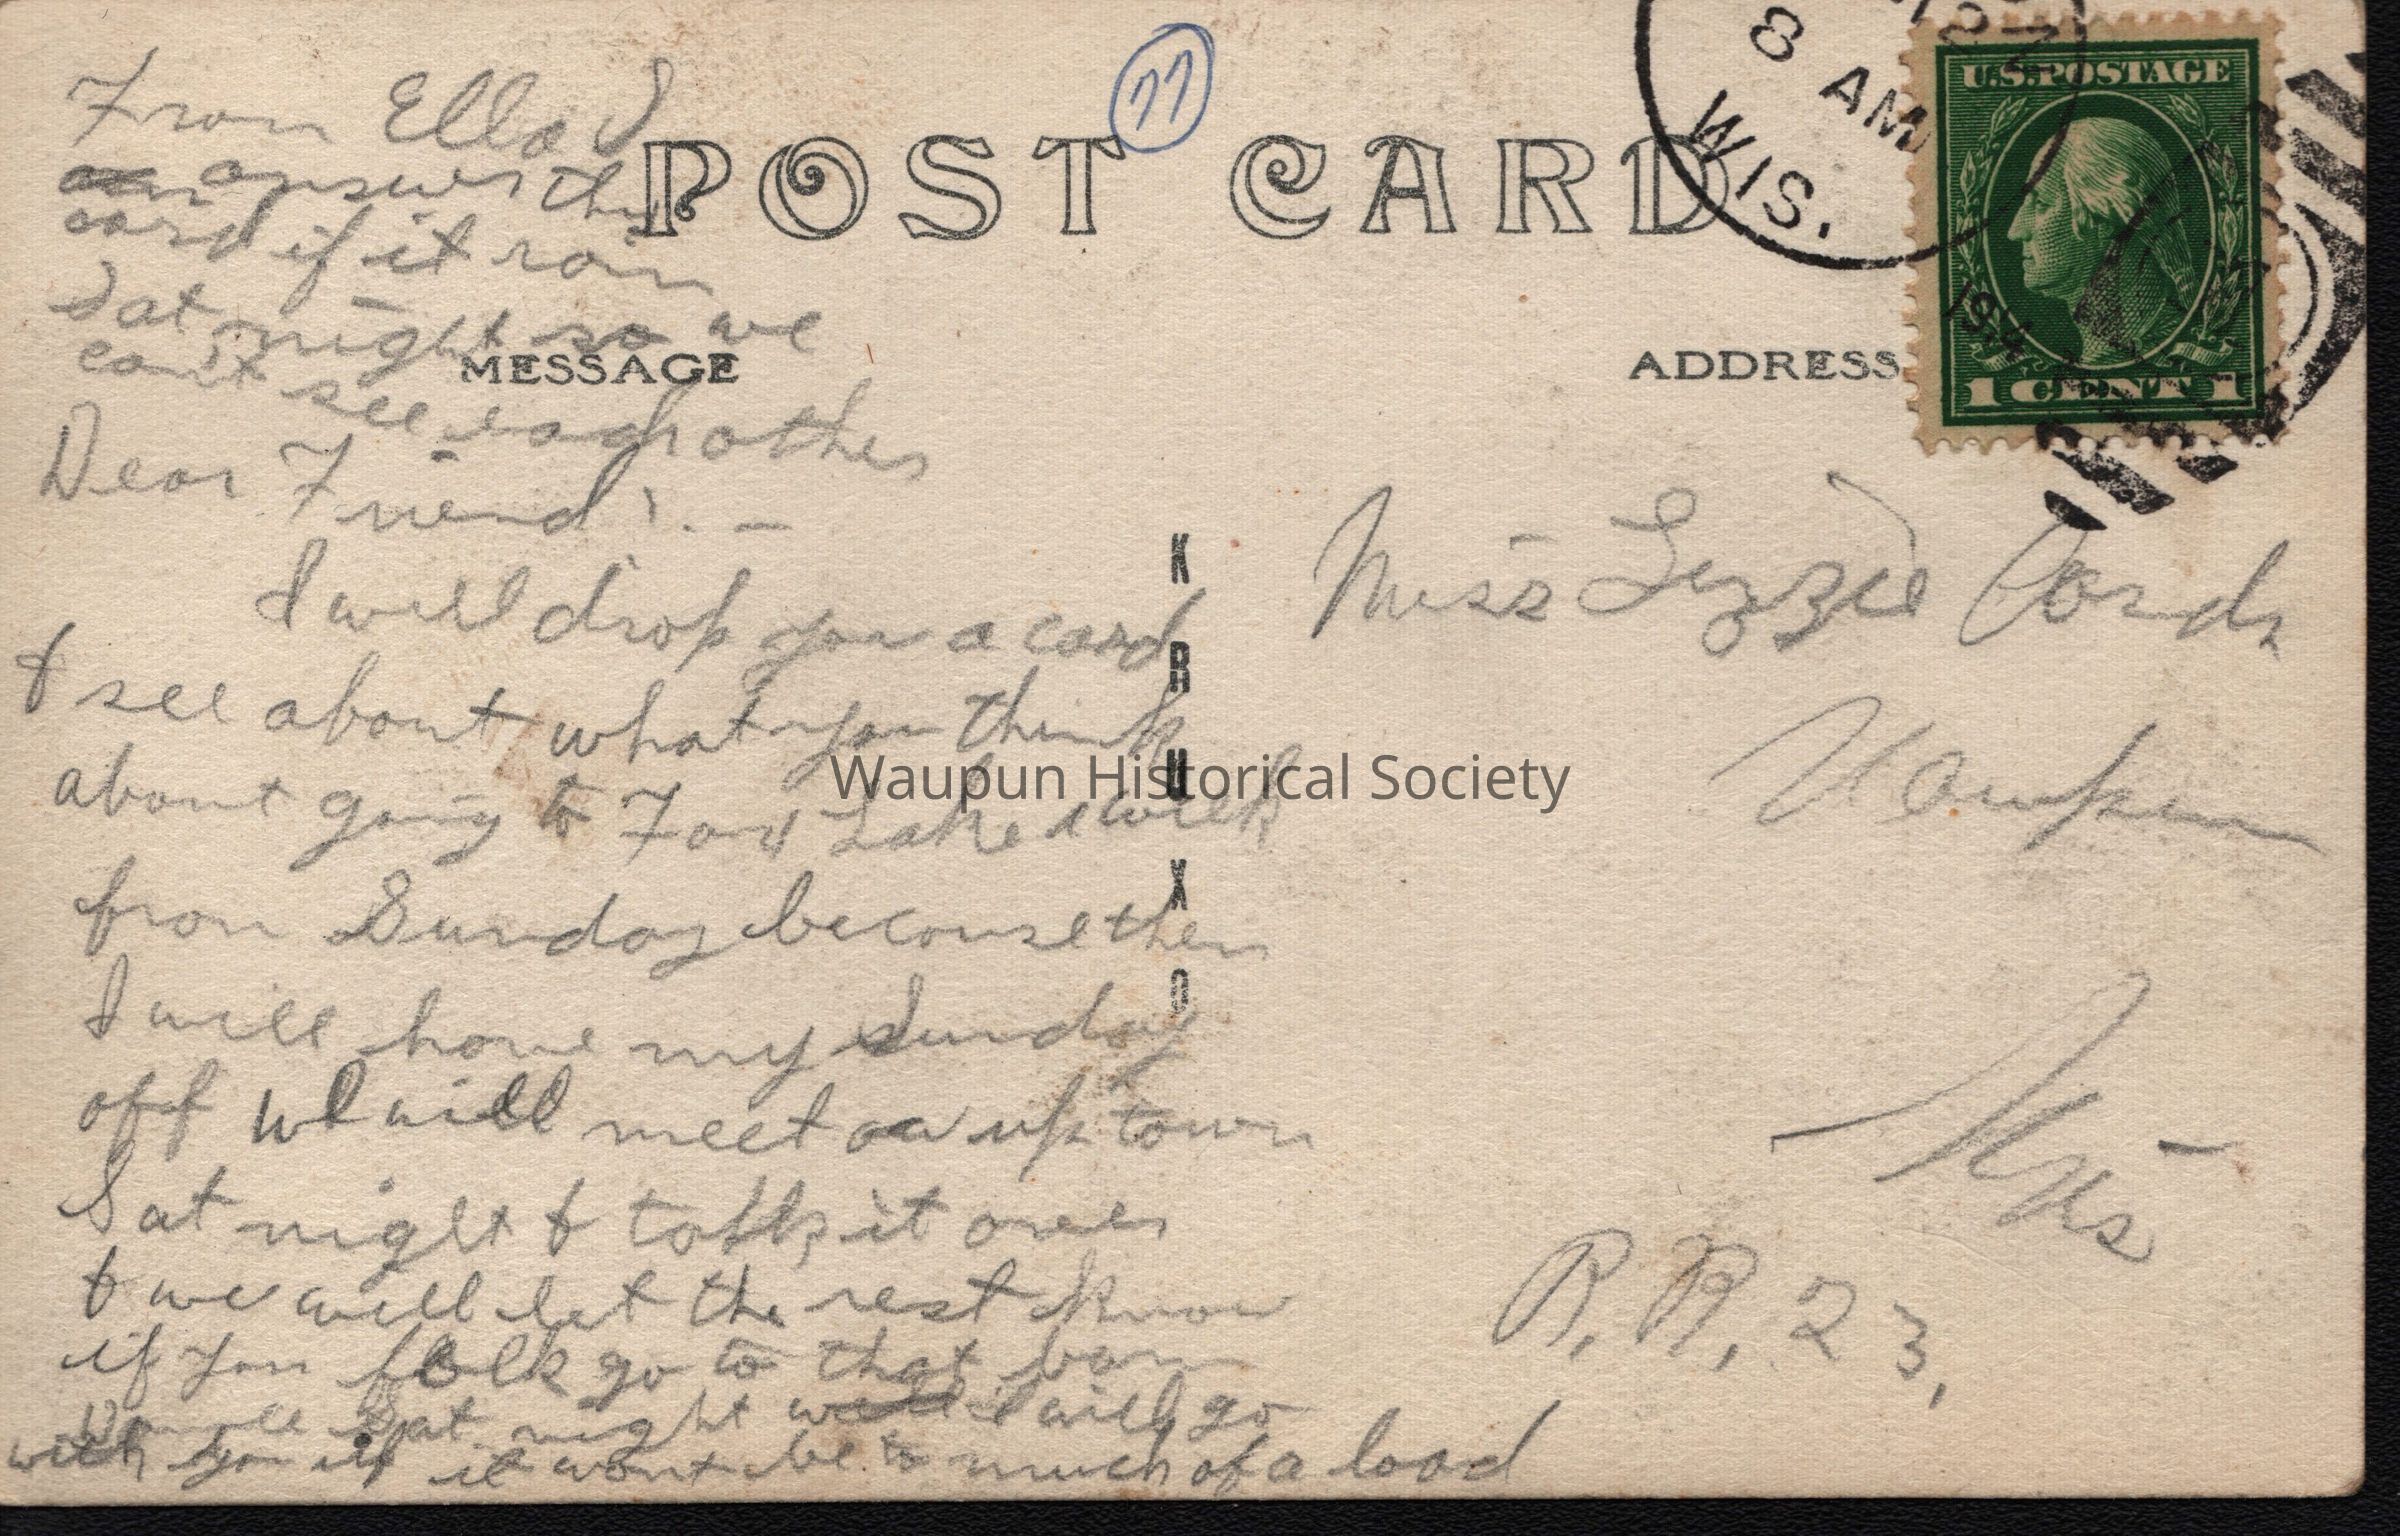 From Ella J
answer this
card if it rain
Sat night so we
can't see each other
77
POST CARD
8 AM
WIS.
191
U.S. POSTAGE
1 CENT 1
MESSAGE
ADDRESS
Dear Friend:-
I will drop you a card
& see about what you think
about going to Fox Lake a week
from Sunday because then
I will have my Sunday
off we will meet up town
Sat night & talk it over
& we will let the rest know
if you folk go to that barn
Sat night I will go
with you if it wont be to much of a load
KRUXO
Miss Lizzie Cards
Waupun
Wis
R. R. 23,
Waupun Historical Society